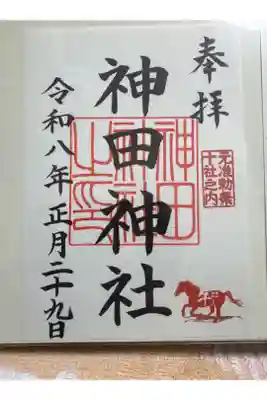 奉拝
元准勅祭
十社之内
神田神社
神田
神社
之印
令和八年 正月二十九日